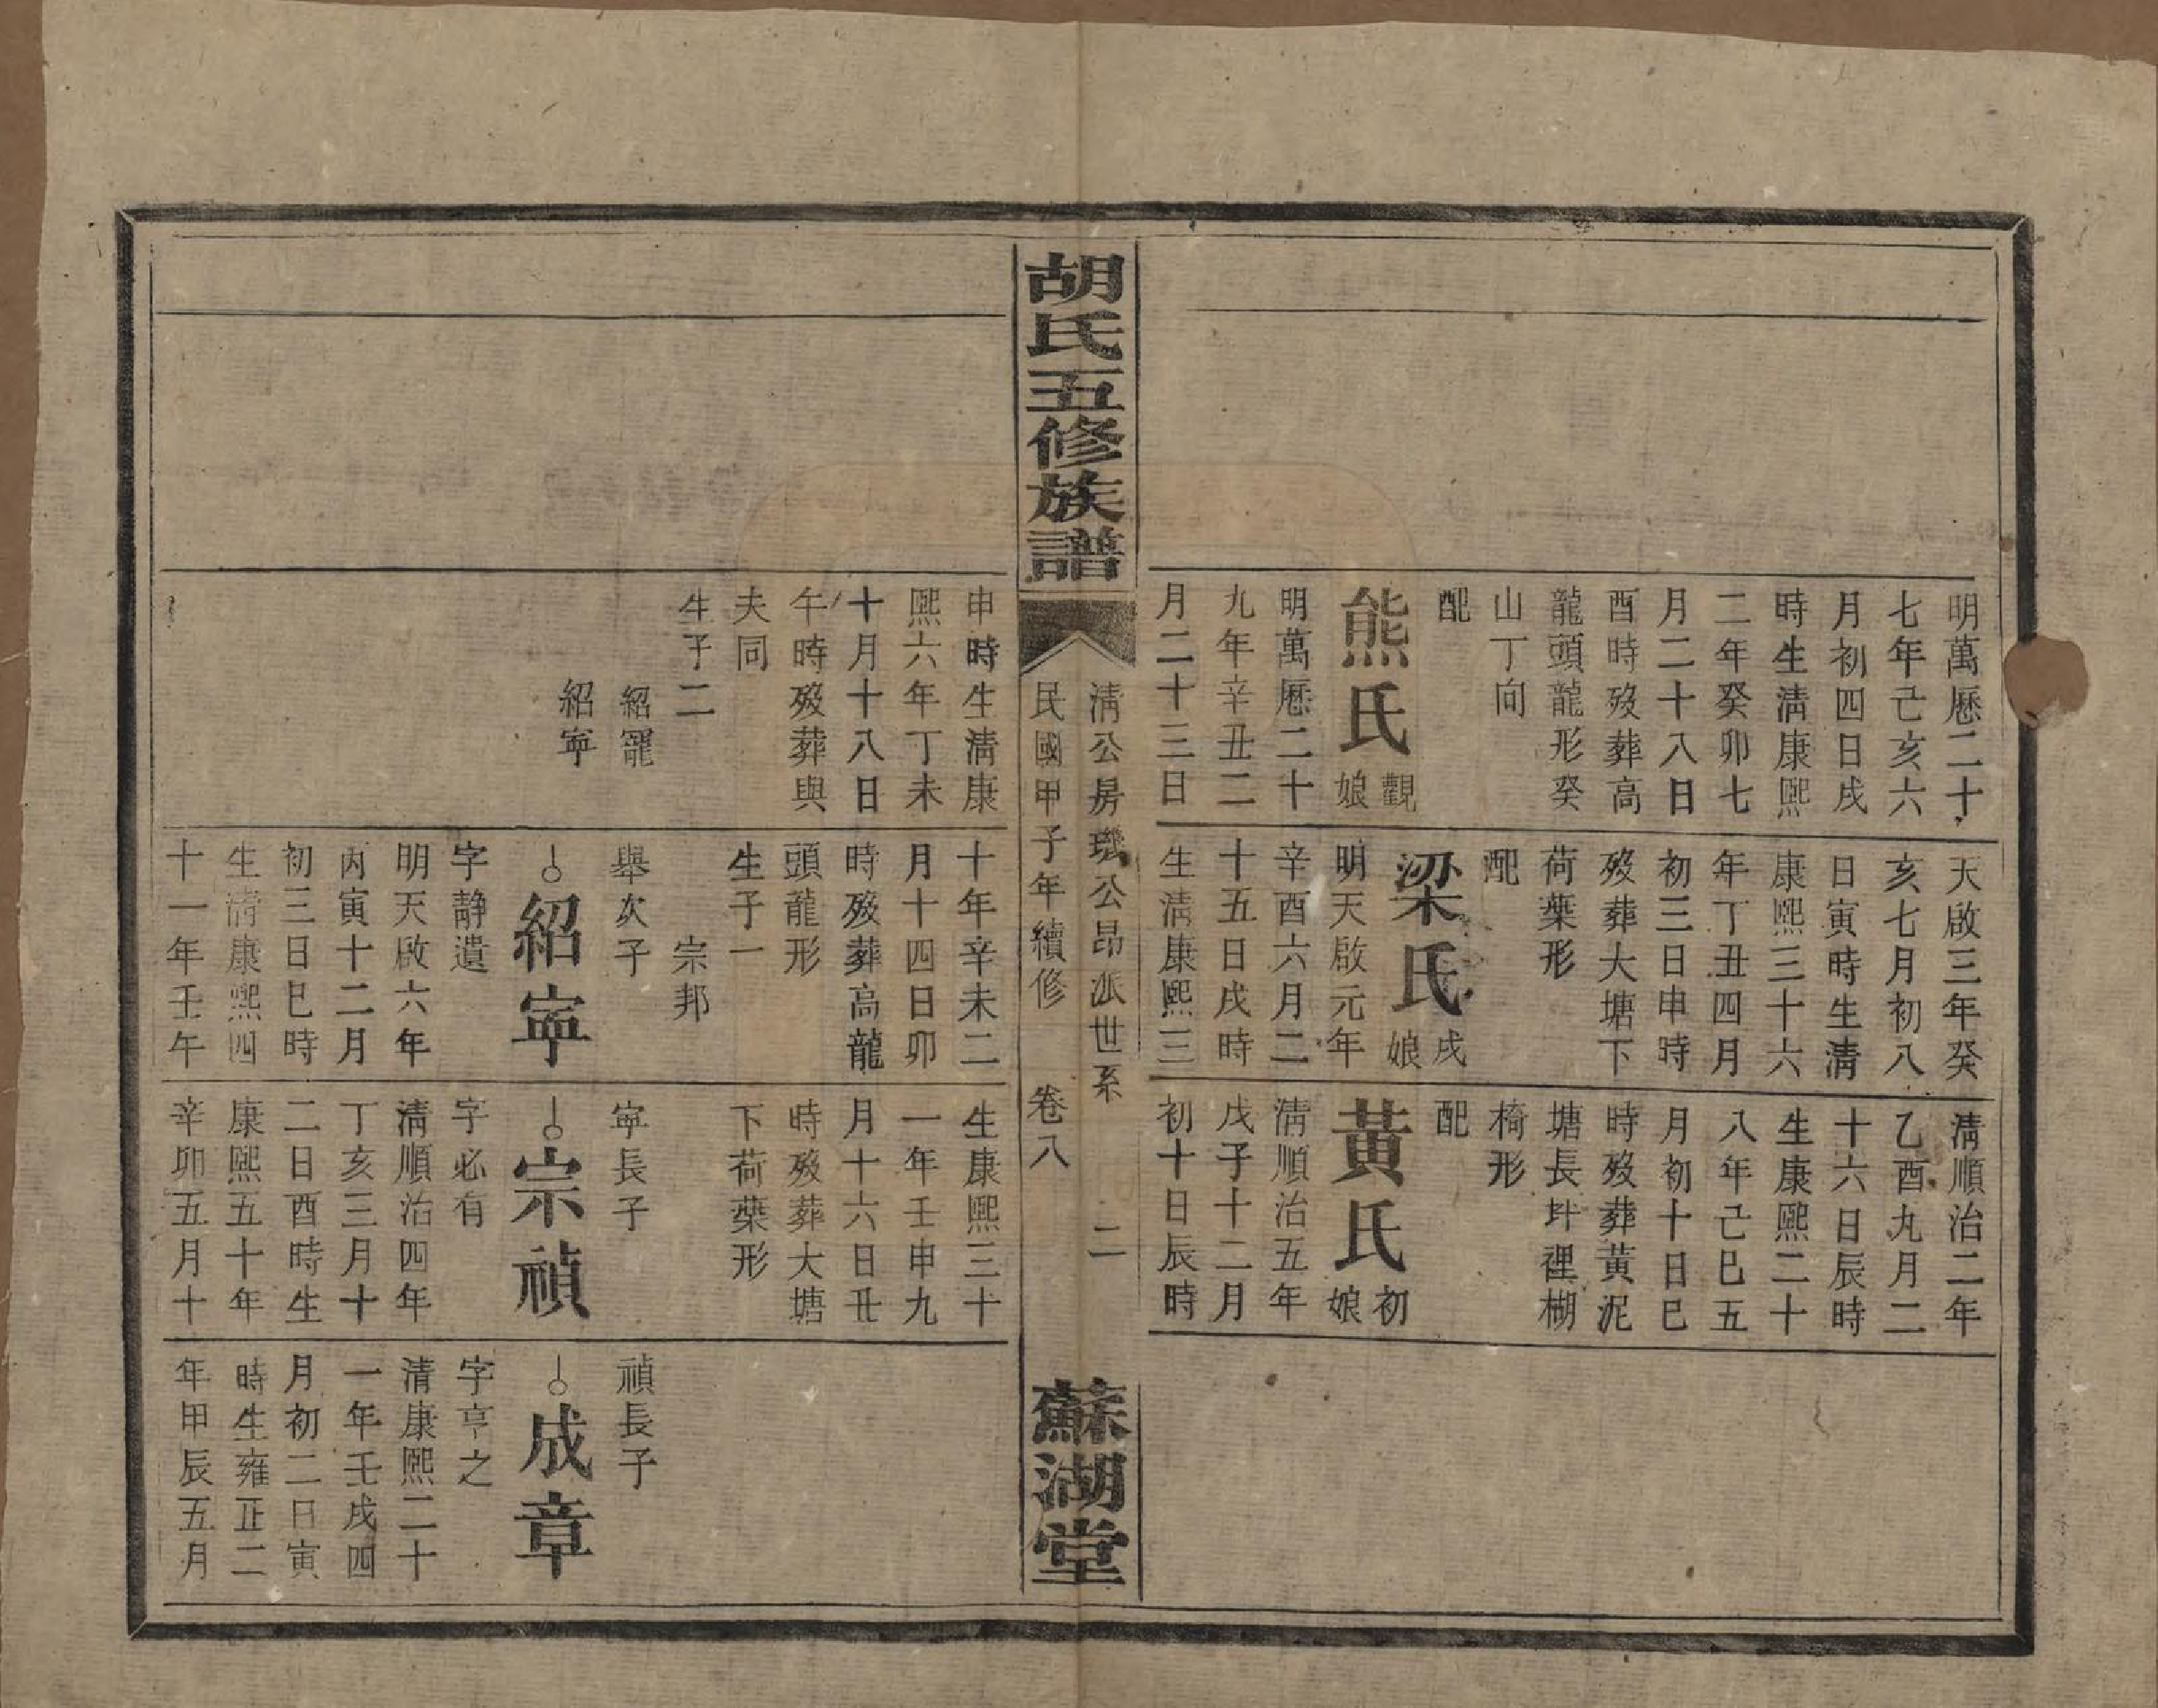 明萬厯二十
七年己亥六
月初四日戌
時生淸康熙
二年癸卯七
月二十八日
酉時歿葬高
龍頭龍形癸
山丁向
配
熊氏觀娘
明萬厯二十
九年辛丑二
月二十三日
天啟三年癸
亥七月初八
日寅時生淸
康熙三十六
年丁丑四月
初三日申時
歿葬大塘下
荷葉形
配
梁氏戌娘
明天啟元年
辛酉六月二
十五日戌時
生淸康熙三
淸順治二年
乙酉九月二
十六日辰時
生康熙二十
八年己巳五
月初十日巳
時歿葬黃泥
塘長坪裡棚
椅形
配
黃氏初娘
淸順治五年
戊子十二月
初十日辰時
胡氏五修族譜
淸公房璣公昂派世系
二
民國甲子年續修
卷八
蘇湖堂
申時生淸康
熙六年丁未
十月十八日
午時歿葬與
夫同
生子二
紹寵
紹寧
十年辛未二
月十四日卯
時歿葬高龍
頭龍形
生子一
宗邦
舉次子
紹寧
字靜遺
明天啟六年
丙寅十二月
初三日巳時
生淸康熙四
十一年壬午
生康熙三十
一年壬申九
月十六日丑
時歿葬大塘
下荷葉形
寧長子
宗禎
字必有
淸順治四年
丁亥三月十
二日酉時生
康熙五十年
辛卯五月十
禎長子
成章
字亨之
淸康熙二十
一年壬戌四
月初二日寅
時生雍正二
年甲辰五月